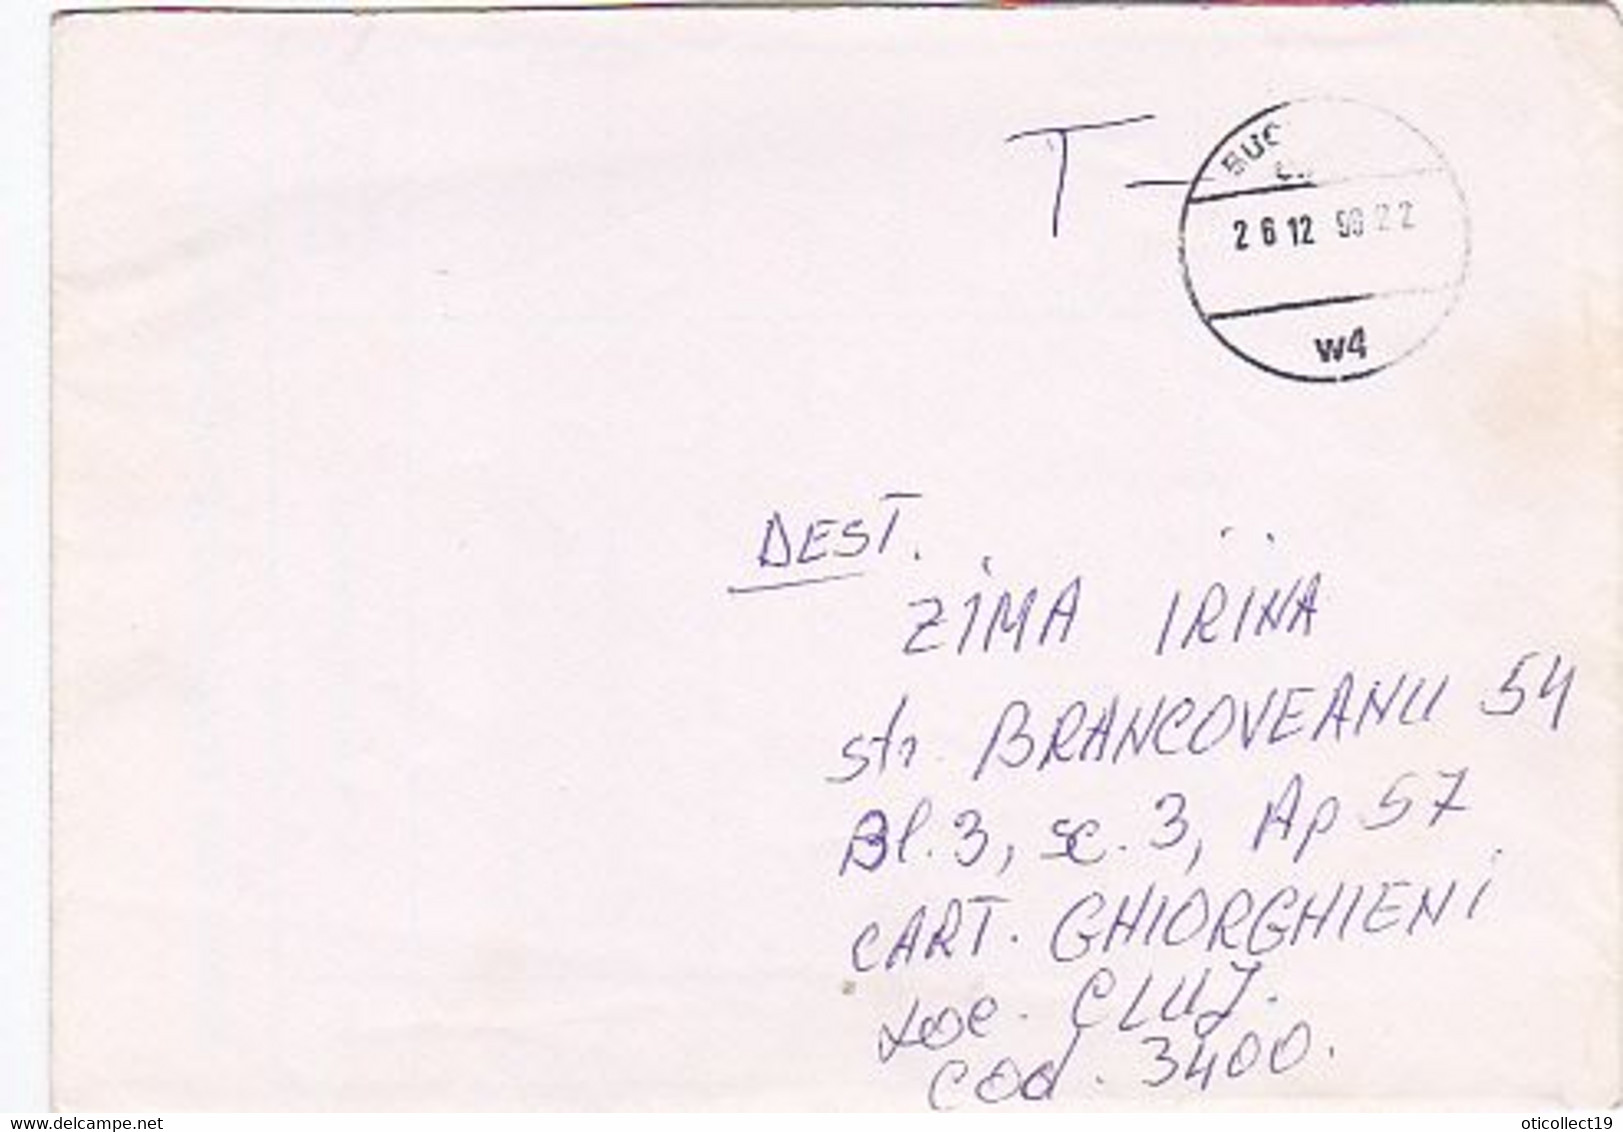 T-
BUC
26 12 90 22
w4
DEST.
ZIMA IRINA
str. BRANCOVEANU 54
Bl. 3, sc. 3, Ap 57
CART. GHIORGHIENI
Loc. CLUJ.
Cod. 3400.
delcampe.net
oticollect19